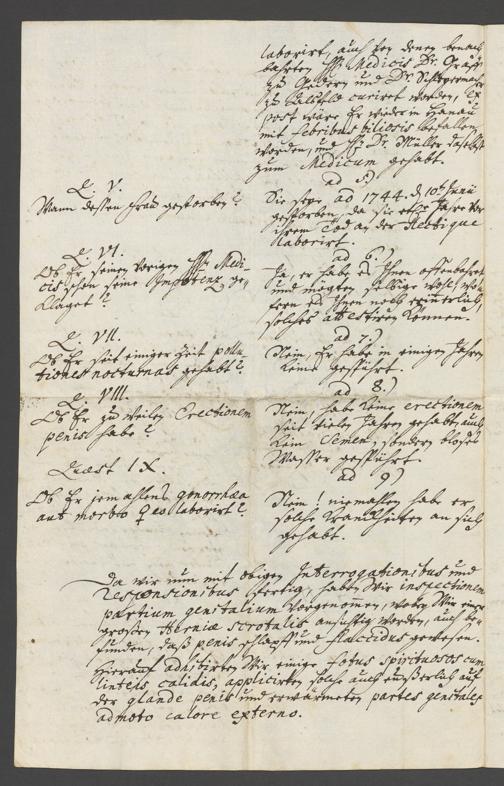 laborirt, auch von denen benach
bahrten HH. Medicis Dr. Gräff
zu Gedern und Dr.
zu curiret worden, Ex
post wäre Er wieder in Hanau
mit febribus biliosis befallen
worden, und HE. Dr. Müller daselbst
zum Medicum gehabt.
Q. V.
Wann dessen Frau gestorben?
ad 5)
Sie sey ao 1744. d. 10t Junii
gestorben, da sie etzl. Jahre vor
ihrem Tod an der Hectique
laborirt.
Q. VI.
Ob Er seinen vorigen HH. Medi-
cis schon seine Impotenz ge-
klaget?
ad 6.)
Ja, er habe es Ihnen offenbahret
und mögten selbige wohl, wo-
fern es Ihnen noch erinnerlich,
solches attestiren können.
Q. VII.
Ob Er seit einiger Zeit pollu-
tiones nocturnas gehabt?
ad 7.)
Nein, Er habe in einigen Jahren
keine gespührt.
Q. VIII.
Ob Er zu weilen Erectionem
penis habe?
ad 8.)
Nein, habe keine erectionem
seit vielen Jahren gehabt, auch
kein Semen, sondern bloses
Wasser gespührt.
Quæst IX.
Ob Er jemahlens gonorrhæa
aut morbo ♀eo laborirt?
ad 9)
Nein! niemahlen habe er
solche Kranckheiten an sich
gehabt.
Da wir nun mit obigen Interrogationibus und
Responsionibus fertig, haben Wir inspectionem
partium genitalium vorgenommen, wobey Wir einer
großen Herniæ scrotalis ansichtig worden, auch be-
funden, daß penis schlapff und flaccidus gewesen.
Hierauf adhibirten Wir einige fotus spirituosos cum
linteis calidis, applicirten solche auch eußerlich auf
der glande penis und erwärmeten partes genitales
admoto calore externo.